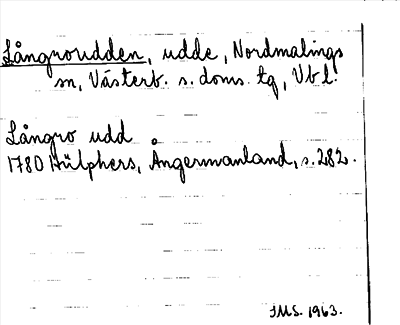 Långroudden, udde, Nordmalings
sn, Västerb. s. doms. tg, Vbl.
Långro udd
1780 Hülphers, Ångermanland, s. 282.
IMS. 1963.